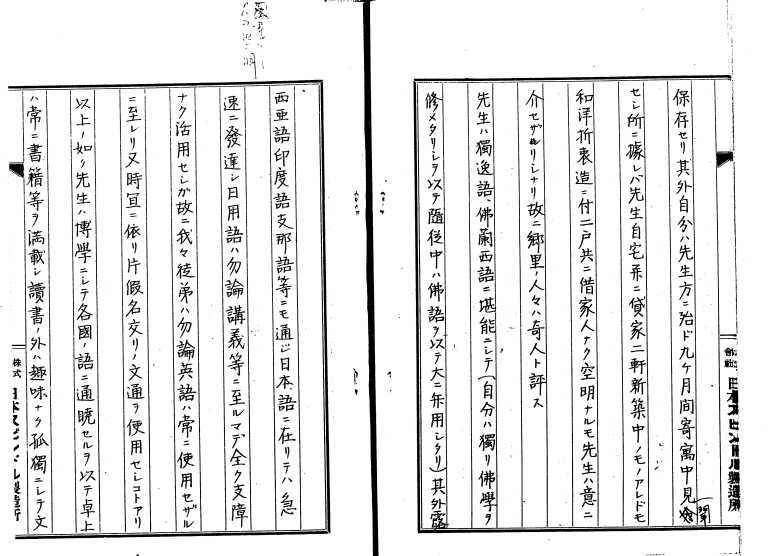 保存セリ其外自分ハ先生方ニ殆ド九ケ月間寄寓中見聞
セシ所ニ據レバ先生自宅并ニ貸家二軒新築中ノモノアレドモ
和洋折衷造ニ付二戸共ニ借家人ナク空明ナルモ先生ハ意ニ
介セザルリシナリ故ニ郷里ノ人々ハ奇人ト評ス
先生ハ獨逸語、佛蘭西語ニ堪能ニシテ(自分ハ獨リ佛學ヲ
修メタリシヲ以テ隨従中ハ佛語ヲ以テ大ニ使用シタリ)其外露
西亜語印度語支那語等ニモ通ジ日本語ニ在リテハ急
速ニ發達シ日用語ハ勿論講義等ニ至ルマデ全ク支障
ナク活用セシガ故ニ我々徒弟ハ勿論英語ハ常ニ使用セザル
ニ至レリ又時宜ニ依リ片假名交リノ文通ヲ使用セシコトアリ
以上ノ如ク先生ハ博學ニシテ各國ノ語ニ通曉セルヲ以テ卓上
ハ常ニ書籍等ヲ満載シ讀書ノ外ハ趣味ナク孤獨ニシテ文
株式
日本スピンドル製造所